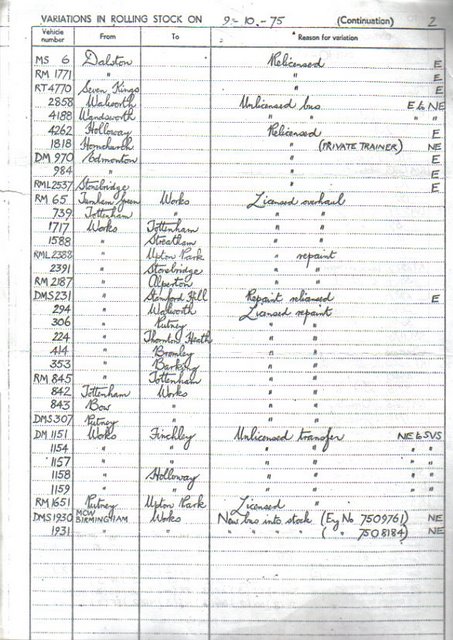 VARIATIONS IN ROLLING STOCK ON 9-10.-75 (Continuation) 2
Vehicle number From To Reason for variation
MS 6 Dalston Relicensed E
RM 1771 " " E
RT 4770 Seven Kings " E
2858 Walworth Unlicensed bus E to NE
4188 Wandsworth " " " "
4262 Holloway Relicensed E
1818 Hornchurch " (PRIVATE TRAINER) NE
DM 970 Edmonton " E
984 " " E
RML 2537 Stonebridge " E
RM 65 Turnham Green Works Licensed overhaul
739 Tottenham " " "
1717 Works Tottenham " "
1588 " Streatham " "
RML 2388 " Upton Park " repaint
2391 " Stonebridge " "
RM 2187 " Alperton " "
DMS 231 " Stamford Hill Repaint relicensed E
294 " Walworth Licensed repaint
306 " Putney " "
224 " Thornton Heath " "
414 " Bromley " "
353 " Barking " "
RM 845 " Tottenham " "
842 Tottenham Works " "
843 Bow " " "
DMS 307 Putney " " "
DM 1151 Works Finchley Unlicensed transfer NE to SVS
1154 " " " " " "
1157 " " " " " "
1158 " Holloway " " " "
1159 " " " " " "
RM 1651 Putney Upton Park Licensed "
DMS 1930 MCW BIRMINGHAM Works New bus into stock (Eng No 7509761) NE
1931 " " " " " " ( " 7508184) NE